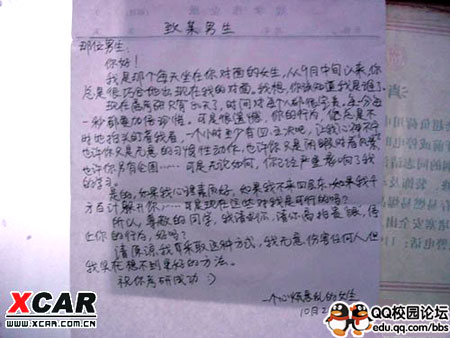 致某男生
那位男生：
你好！
我是那个每天坐在你对面的女生，从9月中旬以来，你
总是很巧合地出现在我的对面。我想，你该知道我是谁了
现在离考研只有 天了，时间对每个人都很宝贵。每一分每
一秒都要加倍珍惜。可是很遗憾，你的行为，你总是不
时地抬头盯着我看，一小时至少有四、五次吧，让我心神不宁
也许你只是无意的习惯性动作，也许你只是闲暇时看风景
也许你另有企图……可是无论如何，你已经严重影响了我
的学习。
是的，如果我心理素质好，如果我不来四层东，如果我千
方百计躲开你……可是现在这些对我是可行的吗？
所以，尊敬的同学，我请求你，请你高抬贵眼，停
止你的行为，好吗？
请原谅我采取这种方式，我无意伤害任何人，但
我实在想不到更好的方法。
祝你考研成功 :)
一个心烦意乱的女生
10月2
XCAR
WWW.XCAR.COM.CN
QQ校园论坛
edu.qq.com/bbs